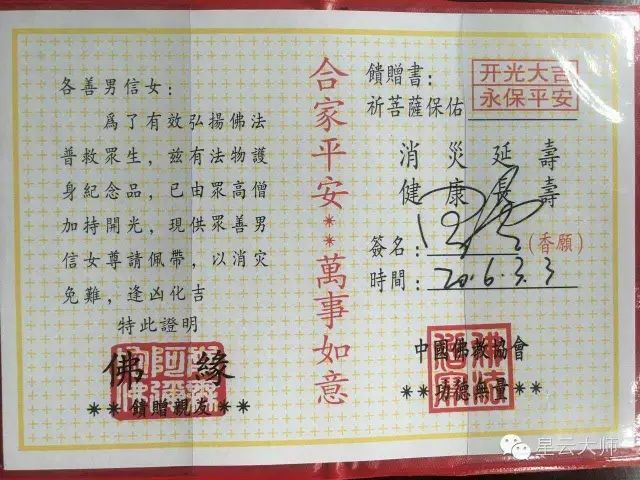 各善男信女：
爲了有效弘揚佛法
普救眾生，兹有法物護
身紀念品，已由眾高僧
加持開光，現供眾善男
信女尊請佩帶，以消灾
免難，逢凶化吉
特此證明
佛緣
**饋贈親友**
合家平安**萬事如意
饋贈書：
开光大吉
永保平安
祈菩薩保佑
消災延壽
健康長壽
簽名：
(香願)
時間：
中國佛教協會
**功德無量**
星云大师